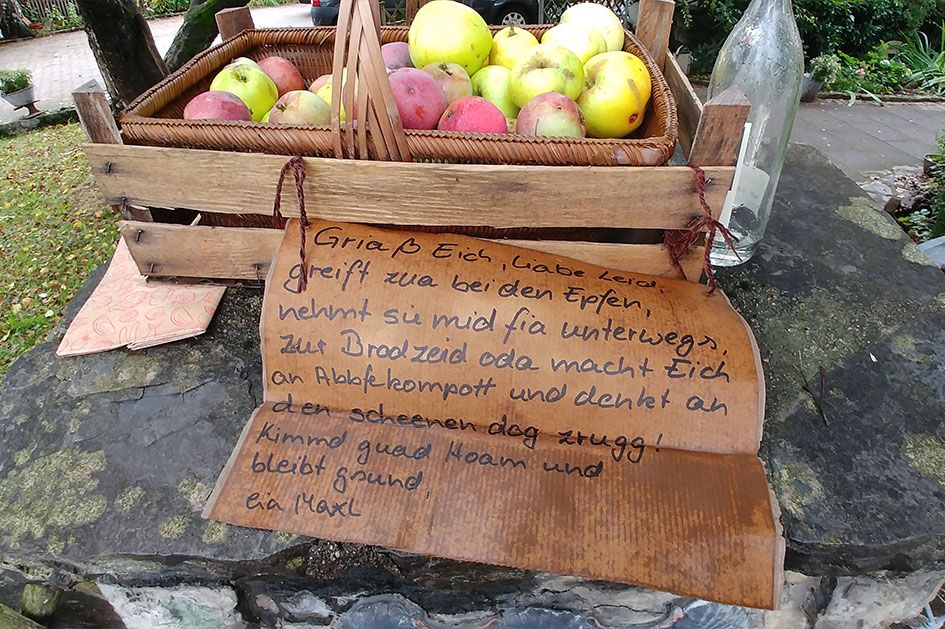 Griaß Eich, liabe Leid,
greift zua bei den Epfen,
nehmt sie mid fia unterwegs,
zur Brodzeid oda macht Eich
an Abbfekompott und denkt an
den scheenen dag zrugg!
Kimmd guad Hoam und
bleibt gsund,
eia Maxl